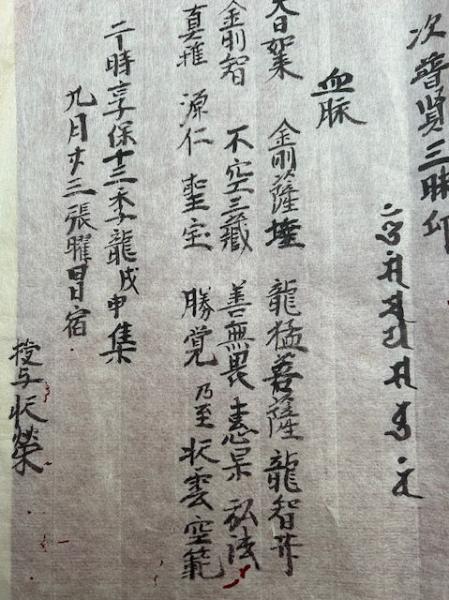 次普賢三昧印
血脉
大日如来 金剛薩埵 龍猛菩薩 龍智𦬇
金剛智 不空三藏 善無畏 恵果 弘法
真雅 源仁 聖宝 勝覚 乃至 状雲 空範
于時享保十三季龍戊申集
九月廿三張曜宿
授与状榮